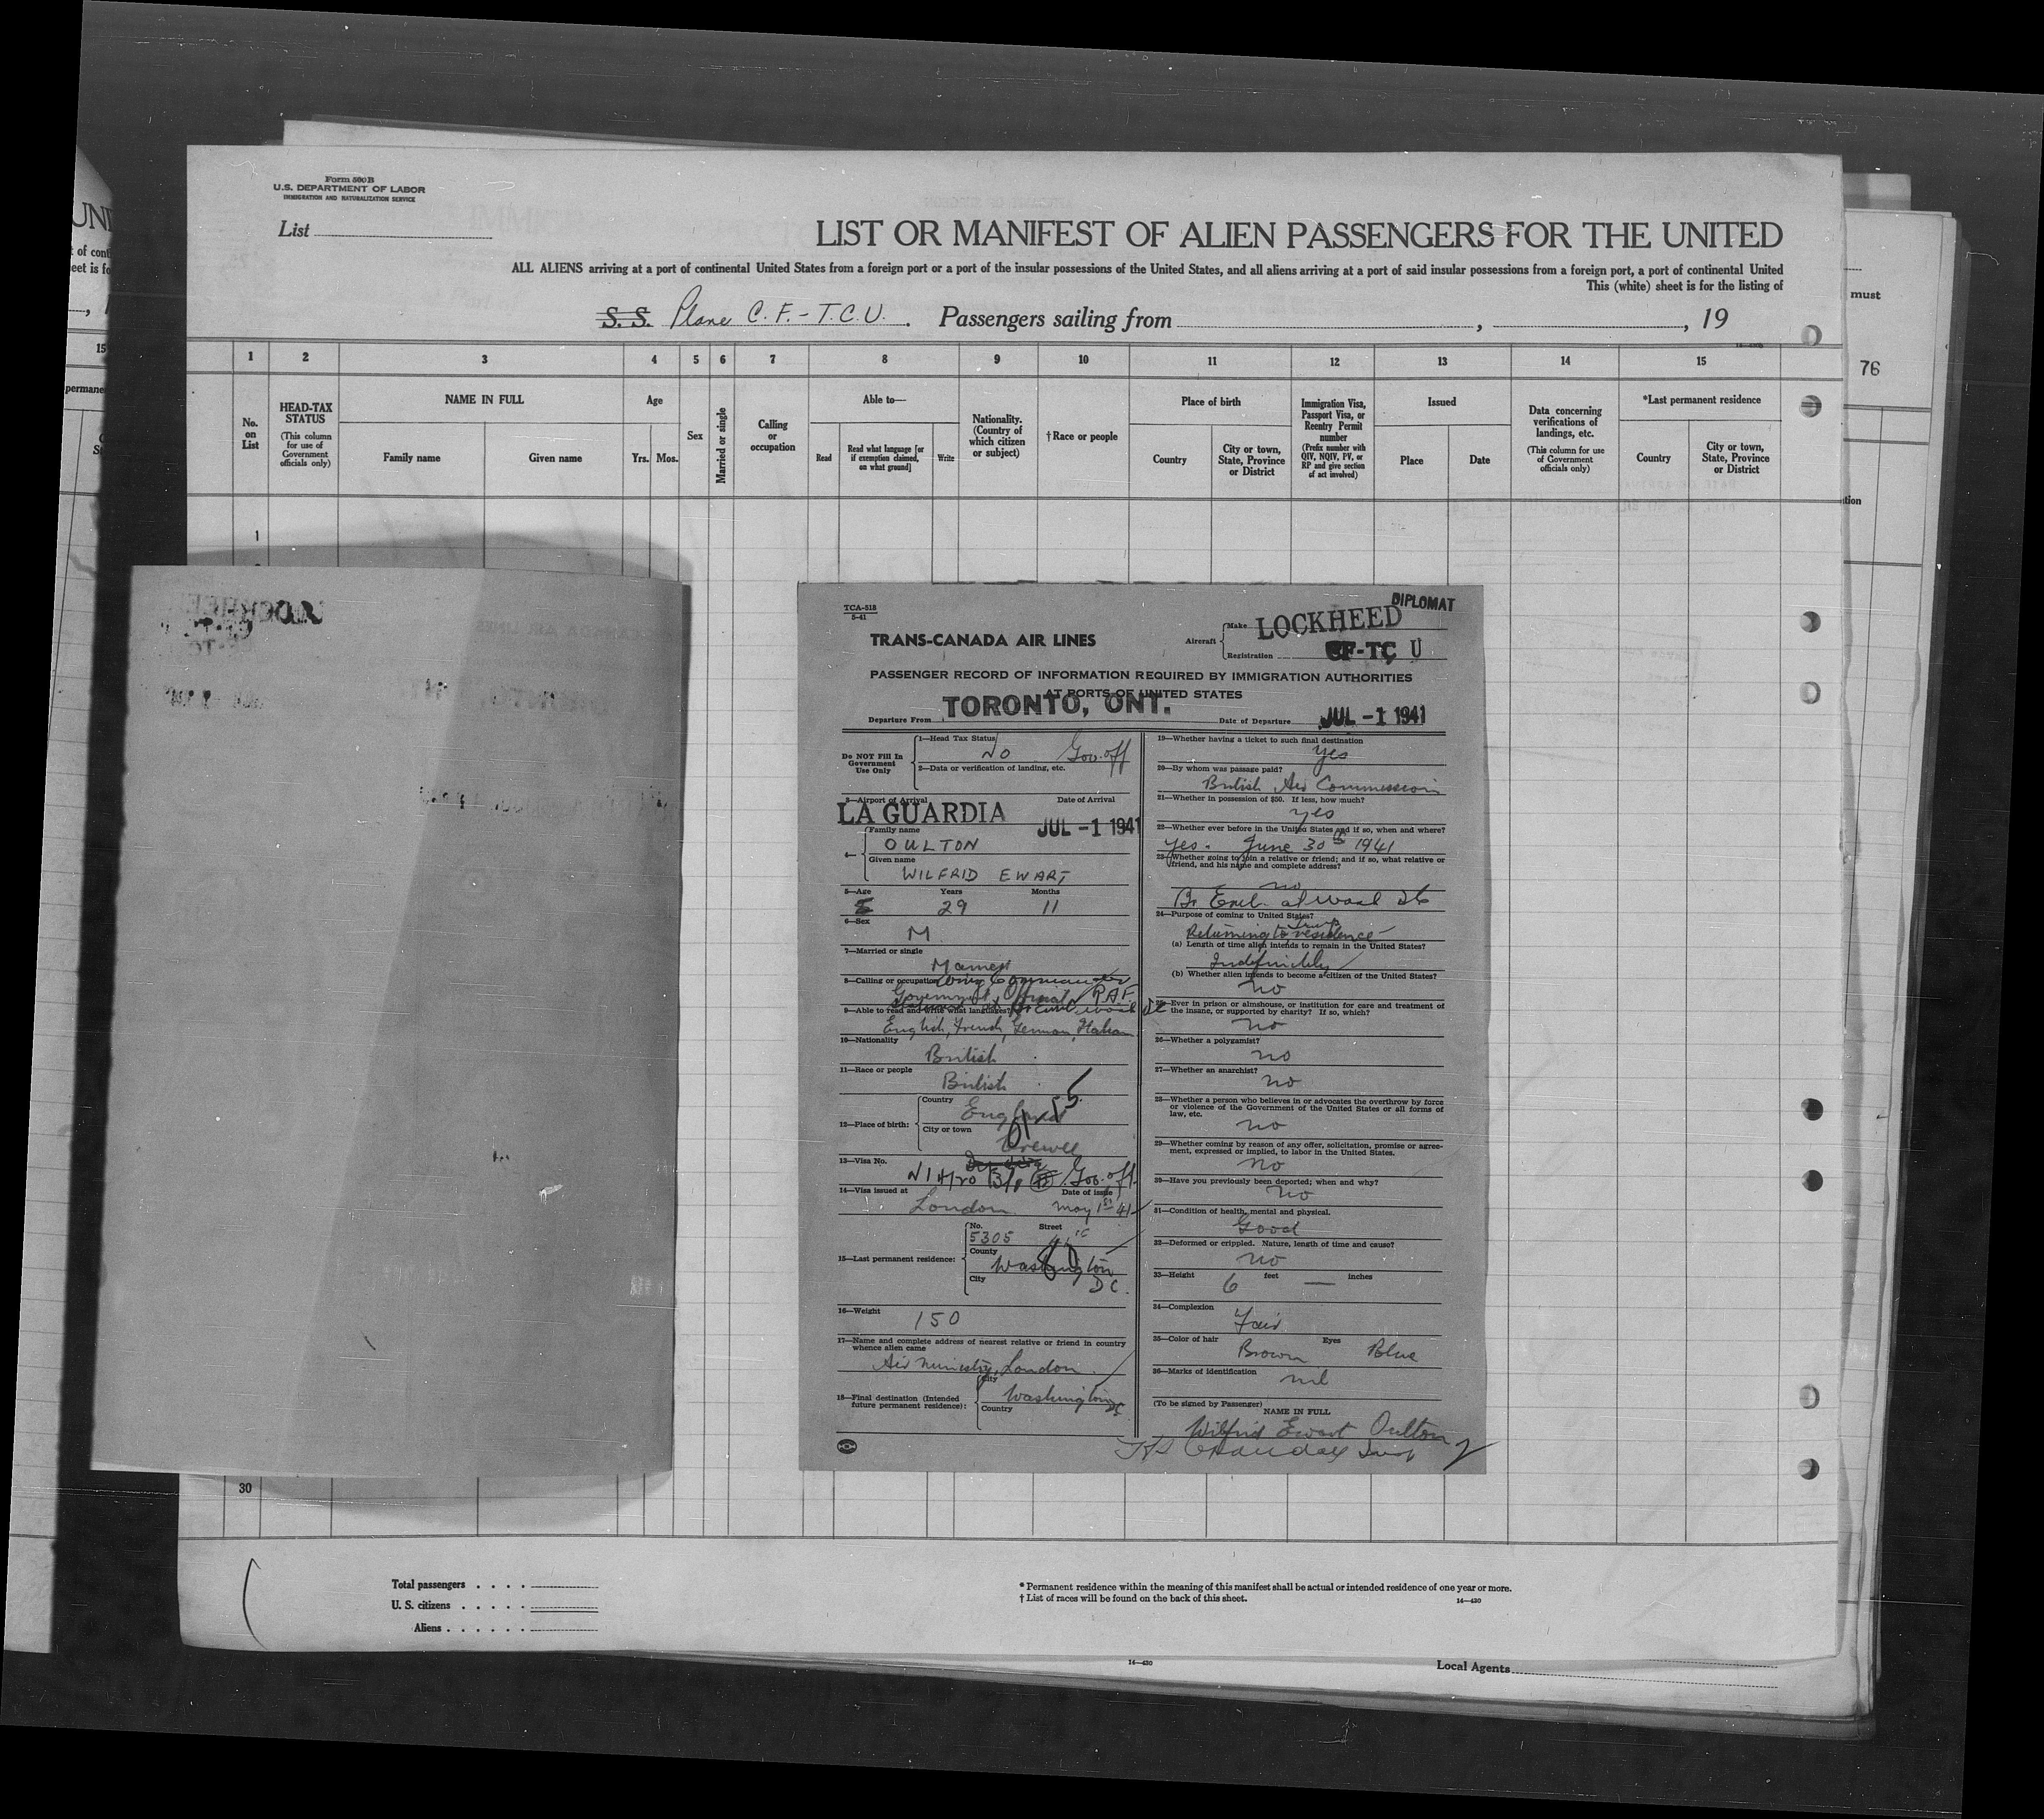 Form 500 B
U.S. DEPARTMENT OF LABOR
IMMIGRATION AND NATURALIZATION SERVICE
List
LIST OR MANIFEST OF ALIEN PASSENGERS FOR THE UNITED
ALL ALIENS arriving at a port of continental United States from a foreign port or a port of the insular possessions of the United States, and all aliens arriving at a port of said insular possessions from a foreign port, a port of continental United
This (white) sheet is for the listing of
S. S. Plane C. F. - T. C. U. Passengers sailing from , , 19
must
76
1 2 3 4 5 6 7 8 9 10 11 12 13 14 15
No. on List
HEAD-TAX STATUS
(This column for use of Government officials only)
NAME IN FULL
Family name Given name
Age
Yrs. Mos.
Sex
Married or single
Calling or occupation
Able to—
Read
Read what language [or if exemption claimed, on what ground]
Write
Nationality. (Country of which citizen or subject)
†Race or people
Place of birth
Country
City or town, State, Province or District
Immigration Visa, Passport Visa, or Reentry Permit number
(Prefix number with QIV, NQIV, PV, or RP and give section of act involved)
Issued
Place Date
Data concerning verifications of landings, etc.
(This column for use of Government officials only)
*Last permanent residence
Country
City or town, State, Province or District
1
30
TCA-518
5-41
DIPLOMAT
TRANS-CANADA AIR LINES
Aircraft
Make LOCKHEED
Registration CF-TC U
PASSENGER RECORD OF INFORMATION REQUIRED BY IMMIGRATION AUTHORITIES
AT PORTS OF UNITED STATES
Departure From TORONTO, ONT. Date of Departure JUL -1 1941
Do NOT Fill In Government Use Only
1—Head Tax Status
NO Gov. off
2—Data or verification of landing, etc.
3—Airport of Arrival Date of Arrival
LA GUARDIA JUL -1 1941
4—
Family name
OULTON
Given name
WILFRID EWART
5—Age Years Months
29 11
6—Sex
M
7—Married or single
Married
8—Calling or occupation Wing Commander
Government Official R.A.F.
9—Able to read and write what languages?
English, French, German, Italian
10—Nationality
British
11—Race or people
British
12—Place of birth:
Country
England
City or town
Crewe
13—Visa No.
Gov. off.
14—Visa issued at Date of issue
London May 1st 41
15—Last permanent residence:
No. Street
5305
County
Washington
City
DC.
16—Weight
150
17—Name and complete address of nearest relative or friend in country
whence alien came
Air Ministry, London.
18—Final destination (Intended future permanent residence):
City
Washington DC
Country
19—Whether having a ticket to such final destination
Yes
20—By whom was passage paid?
British Air Commission
21—Whether in possession of $50. If less, how much?
yes
22—Whether ever before in the United States and if so, when and where?
Yes. June 30th 1941
23—Whether going to join a relative or friend; and if so, what relative or
friend, and his name and complete address?
no
24—Purpose of coming to United States?
Returning to residence
(a) Length of time alien intends to remain in the United States?
Indefinitely
(b) Whether alien intends to become a citizen of the United States?
no
25—Ever in prison or almshouse, or institution for care and treatment of
the insane, or supported by charity? If so, which?
no
26—Whether a polygamist?
no
27—Whether an anarchist?
no
28—Whether a person who believes in or advocates the overthrow by force
or violence of the Government of the United States or all forms of
law, etc.
no
29—Whether coming by reason of any offer, solicitation, promise or agree-
ment, expressed or implied, to labor in the United States.
no
30—Have you previously been deported; when and why?
no
31—Condition of health, mental and physical.
Good
32—Deformed or crippled. Nature, length of time and cause?
no
33—Height 6 feet — inches
34—Complexion
Fair
35—Color of hair Eyes
Brown Blue
36—Marks of identification
nil
(To be signed by Passenger)
NAME IN FULL
Wilfrid Ewart Oulton
Total passengers
U. S. citizens
Aliens
* Permanent residence within the meaning of this manifest shall be actual or intended residence of one year or more.
† List of races will be found on the back of this sheet.
14—430
14—430
Local Agents